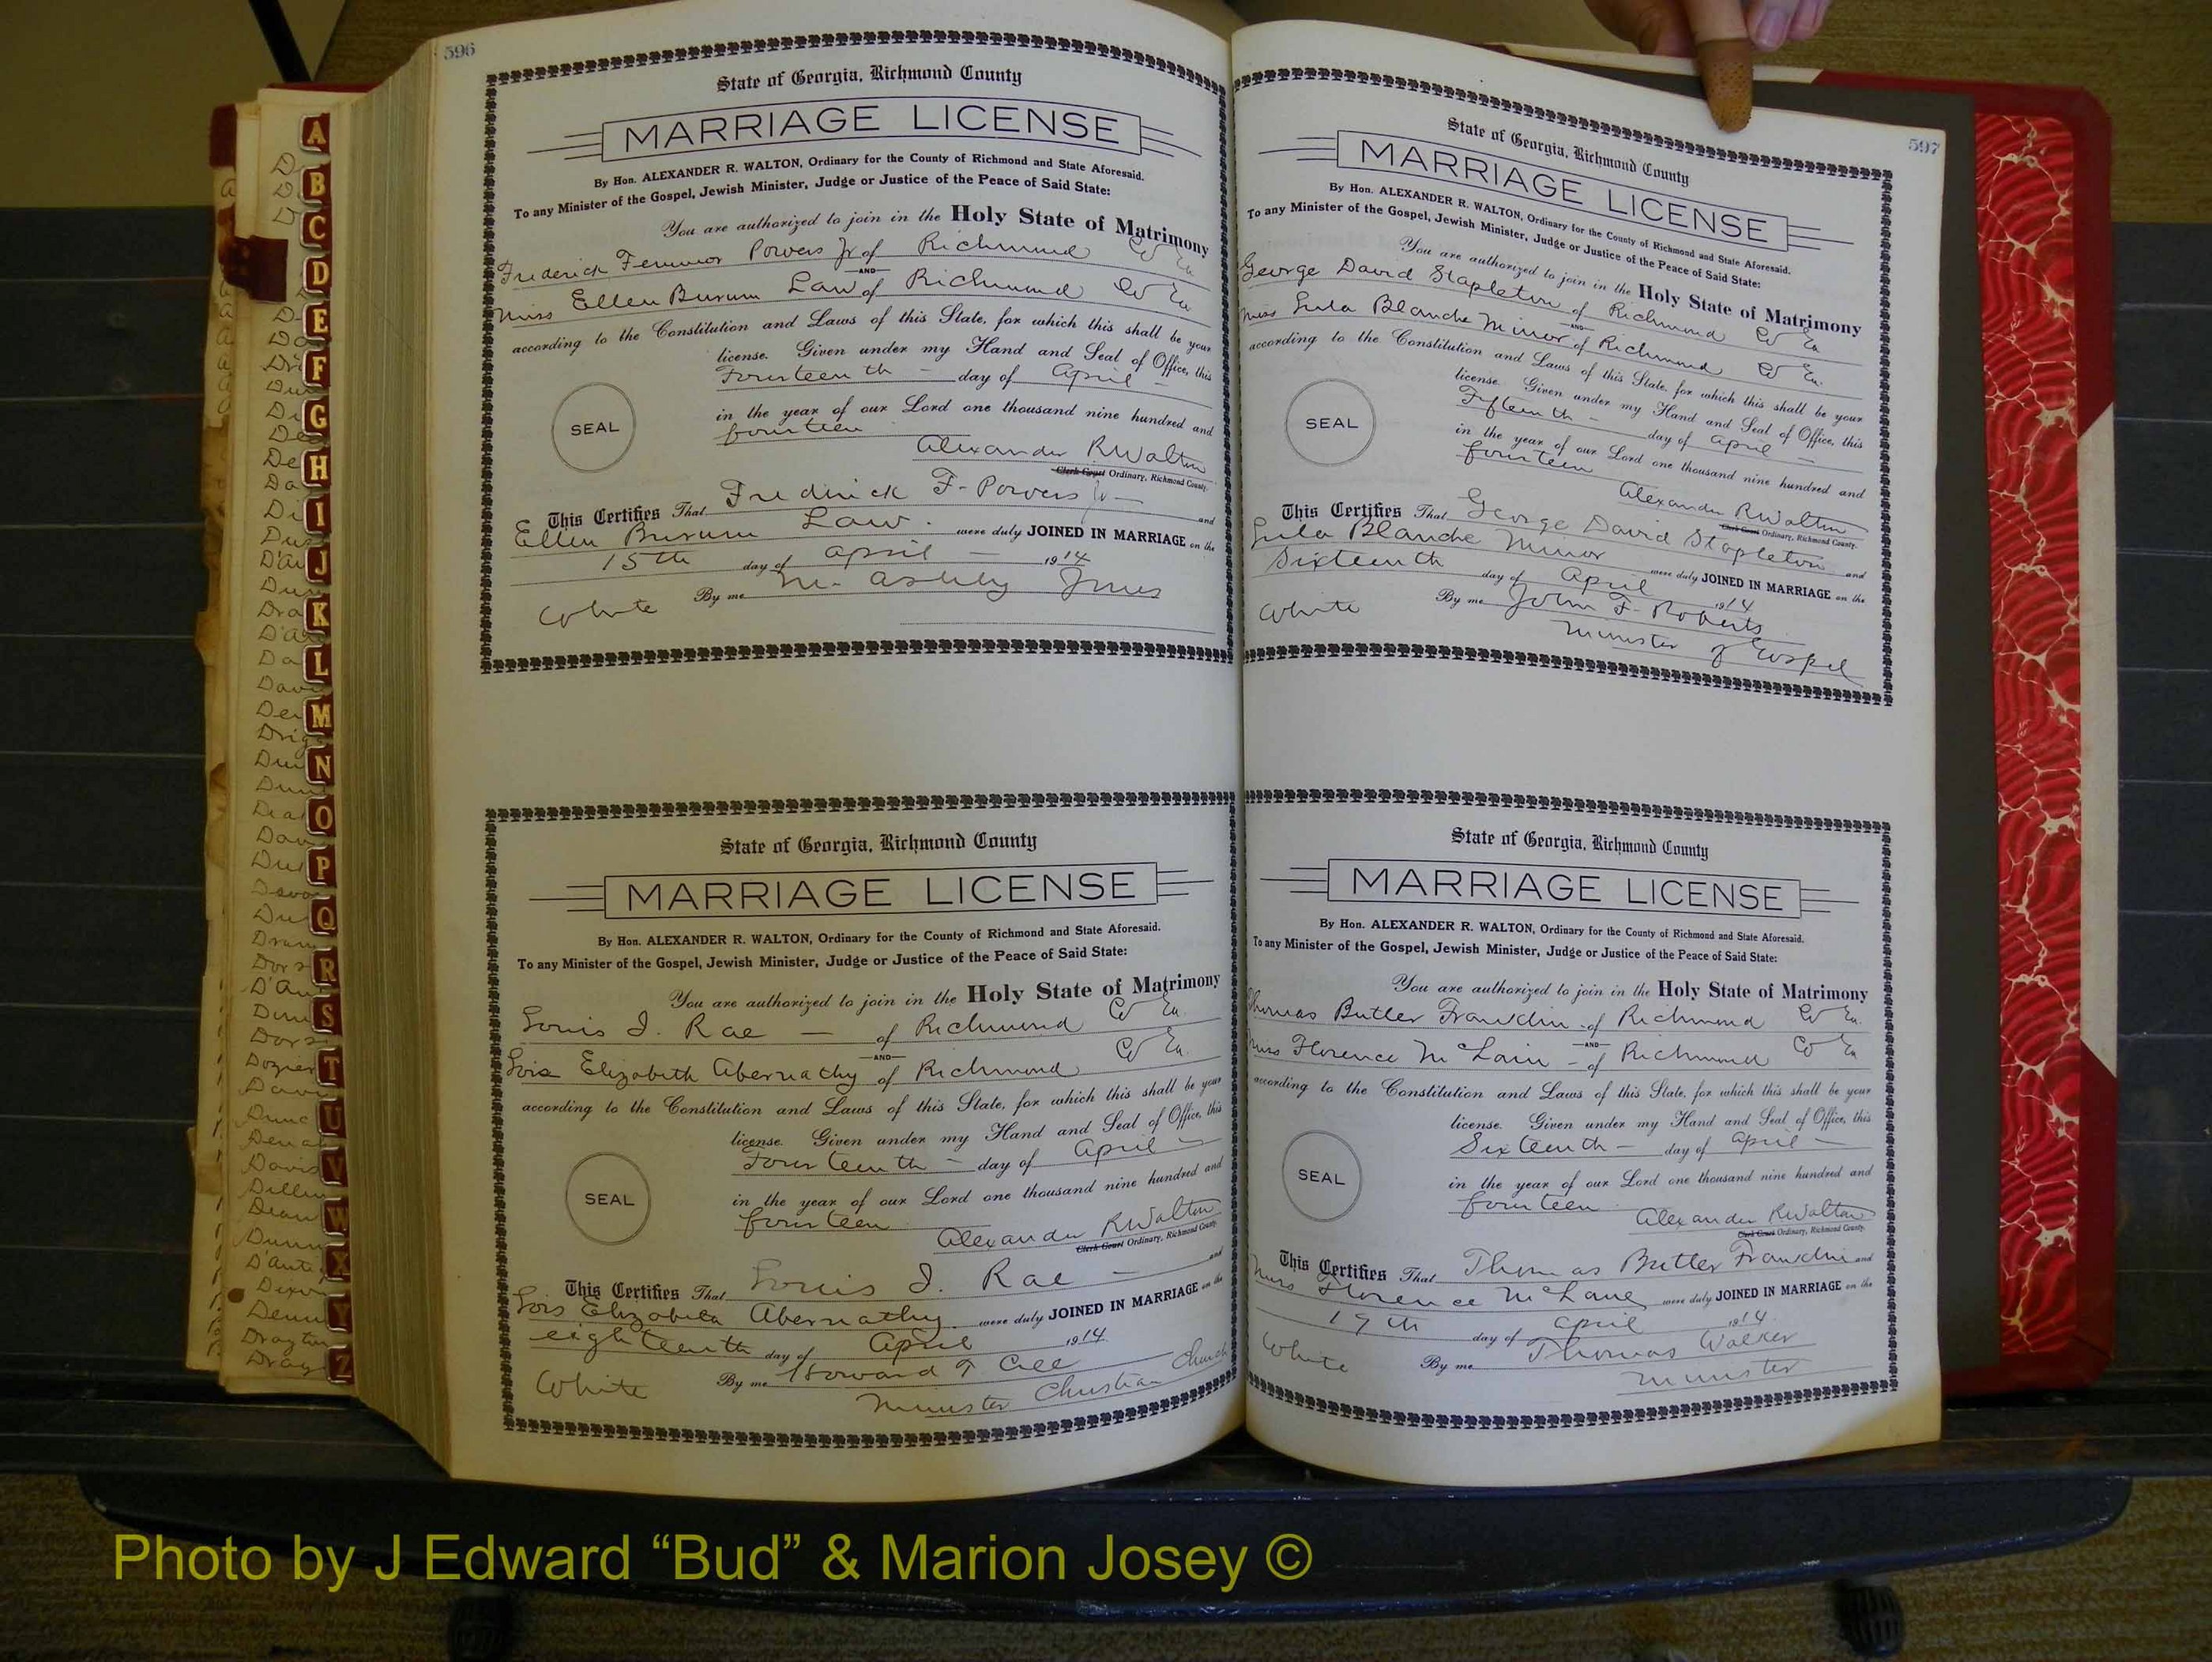 596
State of Georgia, Richmond County
MARRIAGE LICENSE
By Hon. ALEXANDER R. WALTON, Ordinary for the County of Richmond and State Aforesaid.
To any Minister of the Gospel, Jewish Minister, Judge or Justice of the Peace of Said State:
You are authorized to join in the Holy State of Matrimony
Frederick Powers Jr of Richmond Co Ga
AND
Miss Ellen Burum Law of Richmond Co Ga
according to the Constitution and Laws of this State, for which this shall be your
license. Given under my Hand and Seal of Office, this
Fourteenth - day of April -
in the year of our Lord one thousand nine hundred and
fourteen
SEAL
Alexander R Walton
Clerk Court Ordinary, Richmond County.
This Certifies That Frederick F. Powers Jr - and
Ellen Burum Law. were duly JOINED IN MARRIAGE on the
15th day of April - 1914
By me M. Ashby Jones
White
State of Georgia, Richmond County
MARRIAGE LICENSE
By Hon. ALEXANDER R. WALTON, Ordinary for the County of Richmond and State Aforesaid.
To any Minister of the Gospel, Jewish Minister, Judge or Justice of the Peace of Said State:
You are authorized to join in the Holy State of Matrimony
Louis J. Rae - of Richmond Co Ga.
AND
Lois Elizabeth Abernathy of Richmond Co Ga.
according to the Constitution and Laws of this State, for which this shall be your
license. Given under my Hand and Seal of Office, this
Fourteenth - day of April -
in the year of our Lord one thousand nine hundred and
fourteen
SEAL
Alexander R Walton
Clerk Court Ordinary, Richmond County.
This Certifies That Louis J. Rae - and
Lois Elizabeth Abernathy. were duly JOINED IN MARRIAGE on the
eighteenth day of April 1914
By me Howard T. Cree
White
Minister Christian Church
597
State of Georgia, Richmond County
MARRIAGE LICENSE
By Hon. ALEXANDER R. WALTON, Ordinary for the County of Richmond and State Aforesaid.
To any Minister of the Gospel, Jewish Minister, Judge or Justice of the Peace of Said State:
You are authorized to join in the Holy State of Matrimony
George David Stapleton of Richmond Co Ga
AND
Miss Lula Blanche Minor of Richmond Co Ga.
according to the Constitution and Laws of this State, for which this shall be your
license. Given under my Hand and Seal of Office, this
Fifteenth - day of April -
in the year of our Lord one thousand nine hundred and
fourteen
SEAL
Alexander R Walton
Clerk Court Ordinary, Richmond County.
This Certifies That George David Stapleton and
Lula Blanche Minor were duly JOINED IN MARRIAGE on the
Sixteenth day of April 1914
By me John F. Roberts
White
Minister of Gospel
State of Georgia, Richmond County
MARRIAGE LICENSE
By Hon. ALEXANDER R. WALTON, Ordinary for the County of Richmond and State Aforesaid.
To any Minister of the Gospel, Jewish Minister, Judge or Justice of the Peace of Said State:
You are authorized to join in the Holy State of Matrimony
Thomas Butler Franklin - of Richmond Co Ga.
AND
Miss Florence McLain - of Richmond Co Ga
according to the Constitution and Laws of this State, for which this shall be your
license. Given under my Hand and Seal of Office, this
Sixteenth - day of April -
in the year of our Lord one thousand nine hundred and
fourteen
SEAL
Alexander R Walton
Clerk Court Ordinary, Richmond County.
This Certifies That Thomas Butler Franklin and
Miss Florence McLane were duly JOINED IN MARRIAGE on the
day of April 1914
By me Thomas Walker
White
Minister
A
B
C
D
E
F
G
H
I
J
K
L
M
N
O
P
Q
R
S
T
U
V
W
X
Y
Z
Photo by J Edward “Bud” & Marion Josey ©